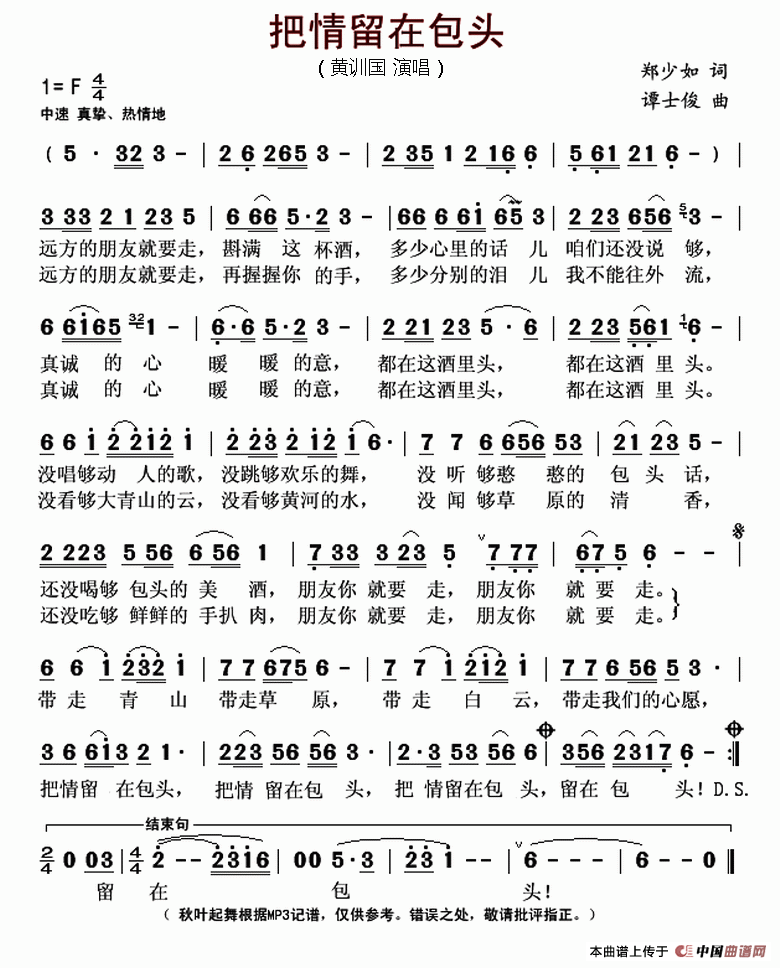 把情留在包头
( 黄训国 演唱 )
1= F 4/4
郑少如 词
中速 真挚、热情地
谭士俊 曲
( 5 · 32 3 - | 2 6 265 3 - | 2 35 1 2 16 6 | 5 61 21 6 - ) |
3 33 2 1 23 5 | 6 66 5·2 3 - | 66 6 6i 65 3 | 2 23 656 5 3 - |
远方的朋友就要走， 斟满 这 杯酒， 多少心里的话 儿 咱们还没说 够，
远方的朋友就要走， 再握握你 的手， 多少分别的泪 儿 我不能往外 流，
6 6i65 32 1 - | 6·6 65 5·2 3 | 2 21 23 5·6 | 2 23 561 1 6 - |
真诚 的 心 暖 暖 的意， 都在这酒里头， 都在这酒 里 头。
真诚 的 心 暖 暖 的意， 都在这酒里头， 都在这酒 里 头。
6 6 i 2 2i2 i | 2 23 2 i2 i 6· | 7 7 6 656 53 | 21 23 5 - |
没唱够动 人的歌， 没跳够欢乐的舞， 没 听 够憨 憨的 包 头 话，
没看够大青山的云， 没看够黄河的水， 没 闻 够草 原的 清 香，
2 223 5 56 6 56 1 | 7 33 3 23 5 | 7 7 77 2 2 | 67 5 6 - - |
还没喝够 包头的 美 酒， 朋友你 就要 走， 朋友你 就 要 走。
还没吃够 鲜鲜的 手扒 肉， 朋友你 就要 走， 朋友你 就 要 走。
6 6 i 232 i | 7 7 675 6 - | 7 7 i 2i2 i | 77 6 56 5 3· |
带 走 青 山 带走草 原， 带 走 白 云， 带走我们的心愿，
3 6 6i3 2 1· | 223 56 56 3 - | 2·3 53 56 6 | 356 2317 6 - :||
把情留 在包头， 把情 留在包 头， 把 情留在包 头， 留在 包 头！D.S.
结束句
2/4 0 03 | 4/4 2 - - 2316 | 00 5·3 | 23 i - - | 6 - - - | 6 - - 0 ||
留 在 包 头！
（ 秋叶起舞根据MP3记谱，仅供参考。错误之处，敬请批评指正。）
本曲谱上传于 中国曲谱网